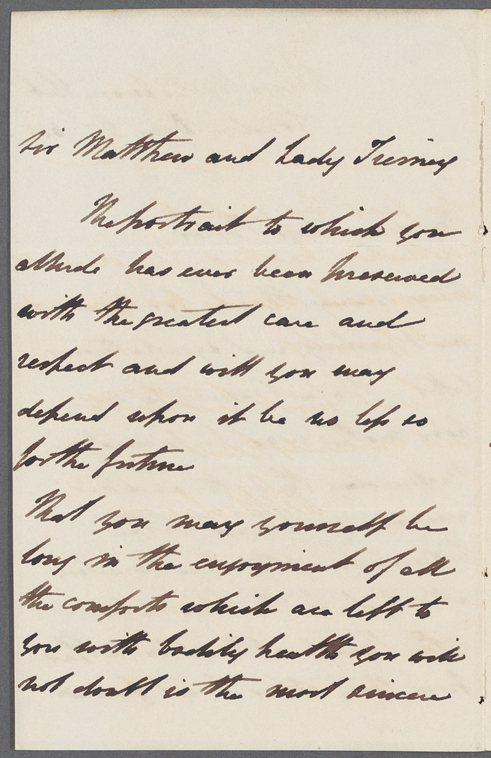 Sir Matthew and Lady Tierney
The portrait to which you
allude has ever been preserved
with the greatest care and
respect and will you may
depend upon it be no less so
for the future
That you may yourself be
long in the enjoyment of all
the comforts which are left to
you with bodily health you will
not doubt is the most sincere